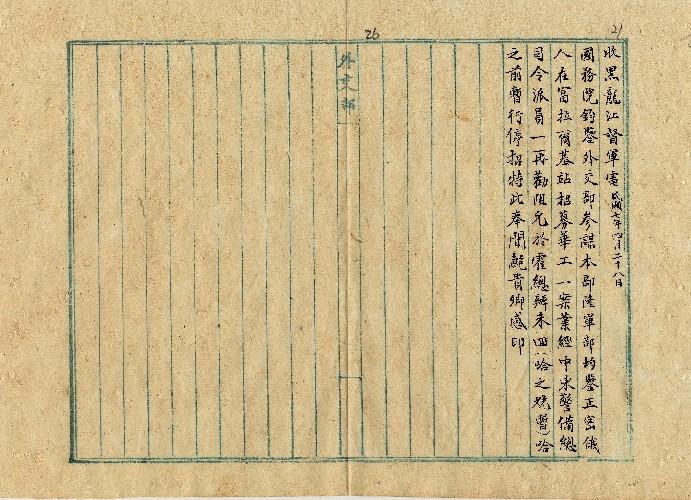 21
26
收黑龍江督軍電 民國七年四月二十八日
國務院鈞鑒外交部參謀本部陸軍部均鑒正密俄
人在富拉爾基站招募華工一案業經中東警備總
司令派員一再勸阻允於霍總辦未回哈之
之前暫行停招特此奉聞鮑貴卿感印
外交部